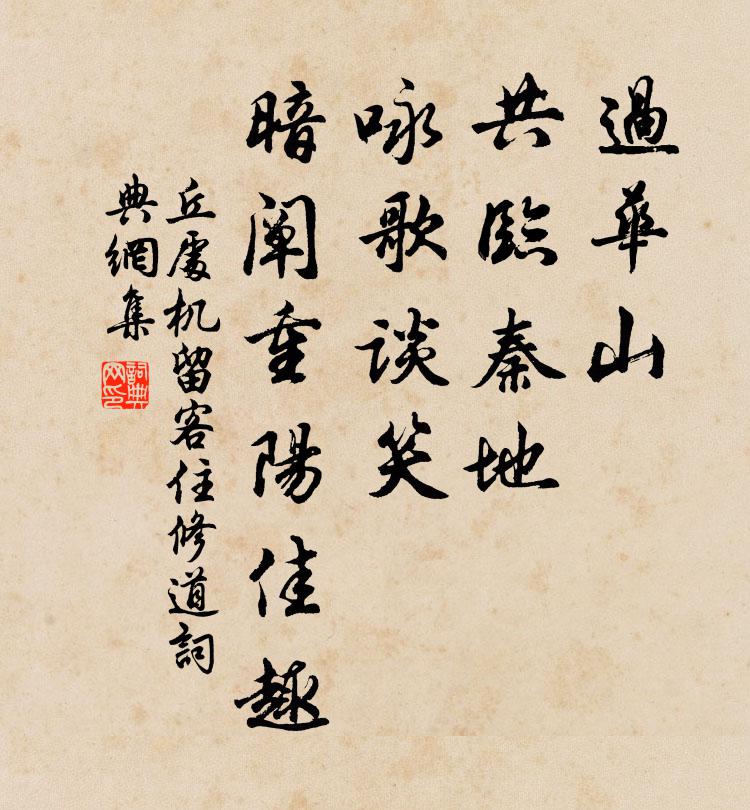 過華山
共臨秦地
咏歌談笑
暗闡重陽佳趣
丘處机留客住修道詞
典網集
詞典
网印